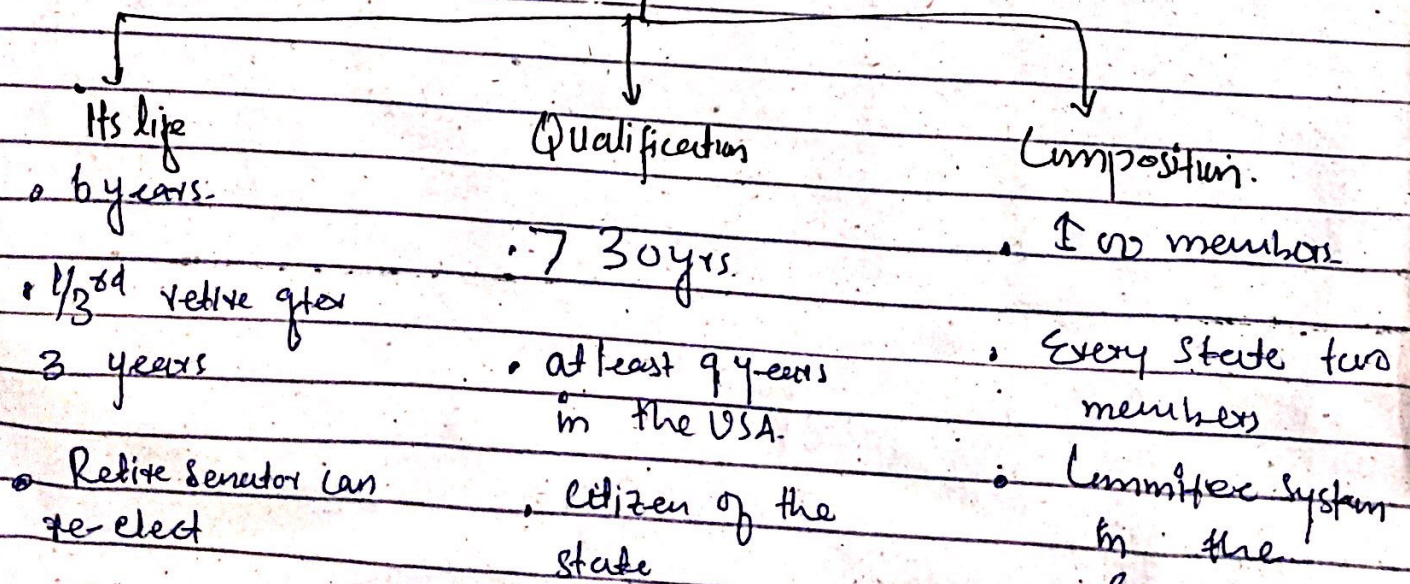 Its life
6 years.
1/3rd retire after
3 years
Retire Senator can
re-elect
Qualification
7 30yrs.
at least 9 years
in the USA.
Citizen of the
state
Composition.
members
Every State two
members
Committee System
in the